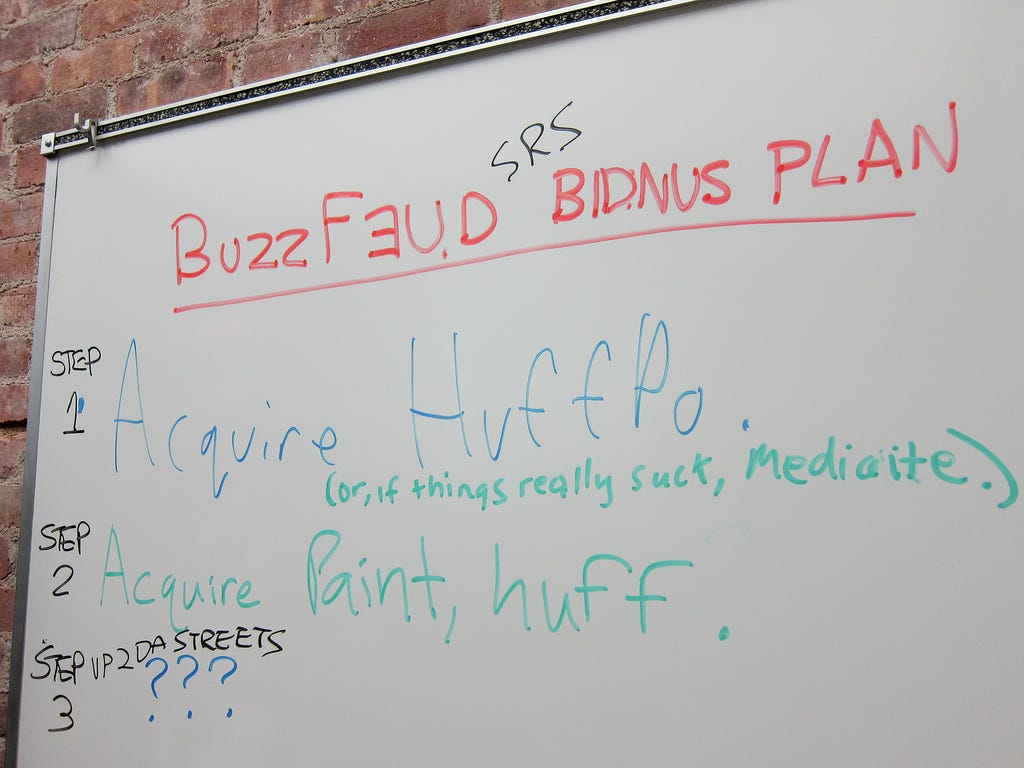 SRS
BUZZFEUD BIDNUS PLAN
STEP 1 Acquire HuffPo.
(or, if things really suck, Mediaite.)
STEP 2 Acquire Paint, huff.
STEP UP 2 DA STREETS
3 ???